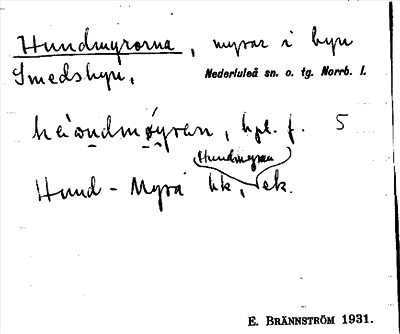 Hundmyrorna, myrar i byn
Smedsbyn,
Nederluleå sn. o. tg. Norrb. l.
hpl. f. 5
Hundmyran
Hund-Myra hk, ek.
E. BRÄNNSTRÖM 1931.